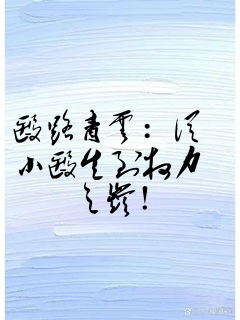 医路青云：从
小医生到权力
之巅！